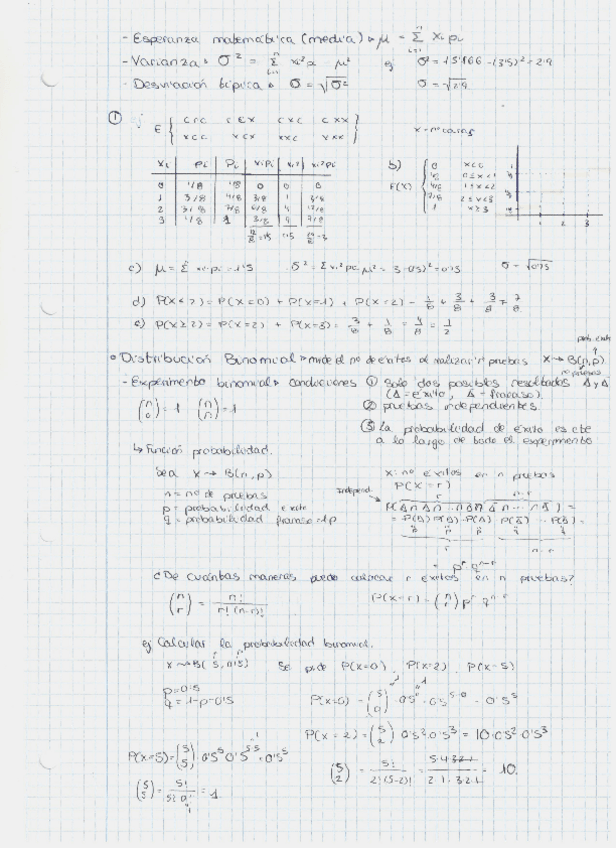 - Esperanza matemática (media) → μ = Σ xi pi
- Varianza → σ² = Σ xi² pi - μ² ej σ² = 15'166 - (3'5)² = 2'9
- Desviación típica → σ = √σ² σ = √2'9
① ej
E { CCC CCX CXC CXX
XCC XCX XXC XXX } X = nº caras
xi | pi | Pi | xi pi | xi² | xi² pi
0 | 1/8 | 1/8 | 0 | 0 | 0
1 | 3/8 | 4/8 | 3/8 | 1 | 3/8
2 | 3/8 | 7/8 | 6/8 | 4 | 12/8
3 | 1/8 | 1 | 3/8 | 9 | 9/8
12/8 = 1'5
b) F(x) { 0 x<0
1/8 0≤x<1
4/8 1≤x<2
7/8 2≤x<3
1 x≥3
1 2 3
c) μ = Σ xi·pi = 1'5 σ² = Σ xi² pi - μ² = 3 - (1'5)² = 0'75 σ = √0'75
d) P(X<2) = P(X=0) + P(X=1) + P(X=2) = 1/8 + 3/8 + 3/8 = 7/8
e) P(X≥2) = P(X=2) + P(X=3) = 3/8 + 1/8 = 4/8 = 1/2
Distribución Binomial → mide el no de éxitos al realizar n pruebas X → B(n,p)
prob. éxito
nº pruebas
- Experimento binomial → condiciones ① Solo dos posibles resultados A y Ā
(A = éxito, Ā = fracaso).
(n 0) = 1 (n n) = 1
② pruebas independientes
③ La probabilidad de éxito es cte
a lo largo de todo el experimento
↳ Función probabilidad.
Sea X → B(n,p)
n = no de pruebas
p = probabilidad éxito
q = probabilidad fracaso = 1-p
X: no éxitos en n pruebas
P(X=r)
Independ.
r n-r
P(A∩A∩ ... ∩A∩Ā∩ ... ∩Ā) =
= P(A)·P(A)...P(A)·P(Ā)...P(Ā) =
p p p q q
r n-r
= p^r · q^(n-r)
¿De cuántas maneras puedo colocar r éxitos en n pruebas?
(n r) = n! / r!(n-r)! P(X=r) = (n r) p^r q^(n-r)
ej Calcular la probabilidad binomial.
X → B(5, 0'5) Se pide P(X=0), P(X=2), P(X=5)
p = 0'5
q = 1-p = 0'5
P(X=0) = (5 0) · 0'5⁰ · 0'5^(5-0) = 0'5⁵
P(X=2) = (5 2) 0'5² · 0'5³ = 10·0'5²·0'5³
P(X=5) = (5 5) 0'5⁵ 0'5^(5-5) = 0'5⁵
(5 2) = 5! / 2!(5-2)! = 5·4·3·2·1 / 2·1·3·2·1 = 10.
(5 5) = 5! / 5!·0! = 1